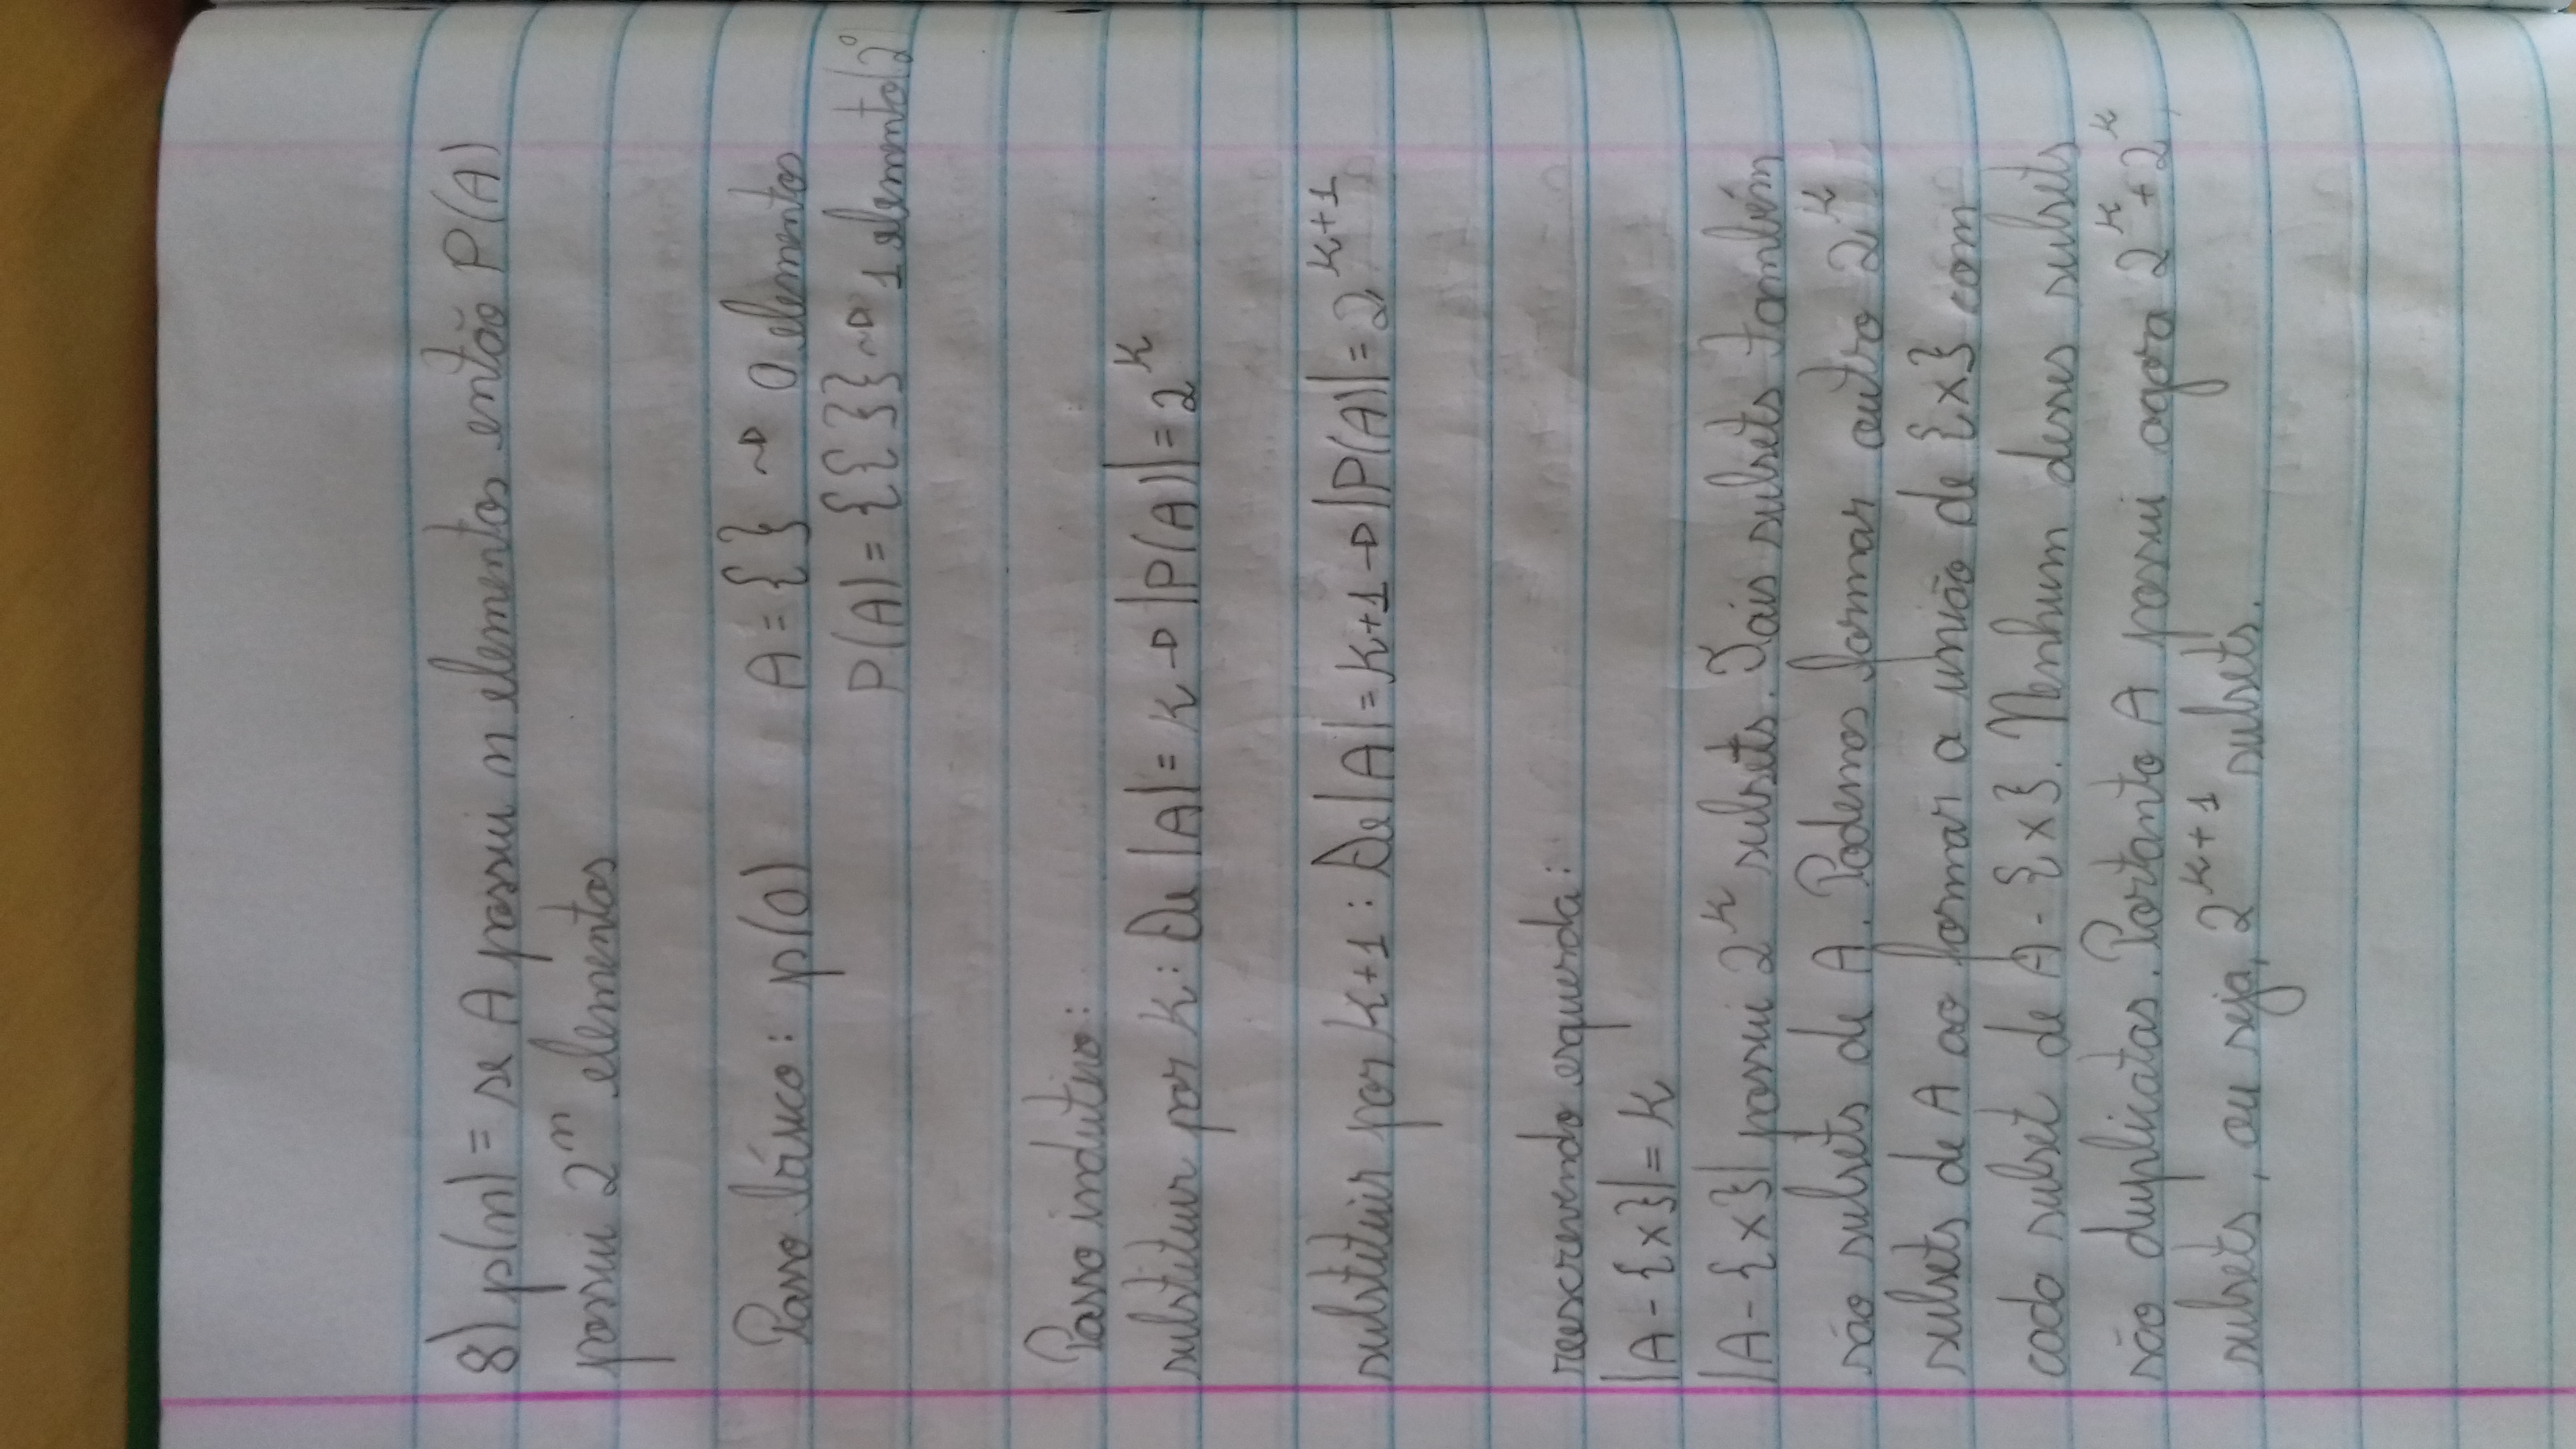 8) p(n) = se A possui n elementos então P(A)
possui 2ⁿ elementos
Passo básico: p(0) A = { } ~> 0 elementos
P(A) = {{ }} ~> 1 elemento | 2⁰
Passo indutivo:
substituir por k: De |A| = k -> |P(A)| = 2ᵏ
substituir por k+1: De |A| = k+1 -> |P(A)| = 2ᵏ⁺¹
reescrevendo esquerda:
|A - {x}| = k
|A - {x}| possui 2ᵏ subsets. Tais subsets também
são subsets de A. Podemos formar outro 2ᵏ
subsets de A ao formar a união de {x} com
cada subset de A - {x}. Nenhum desses subsets
são duplicatas. Portanto A possui agora 2ᵏ + 2ᵏ
subsets, ou seja, 2ᵏ⁺¹ subsets.